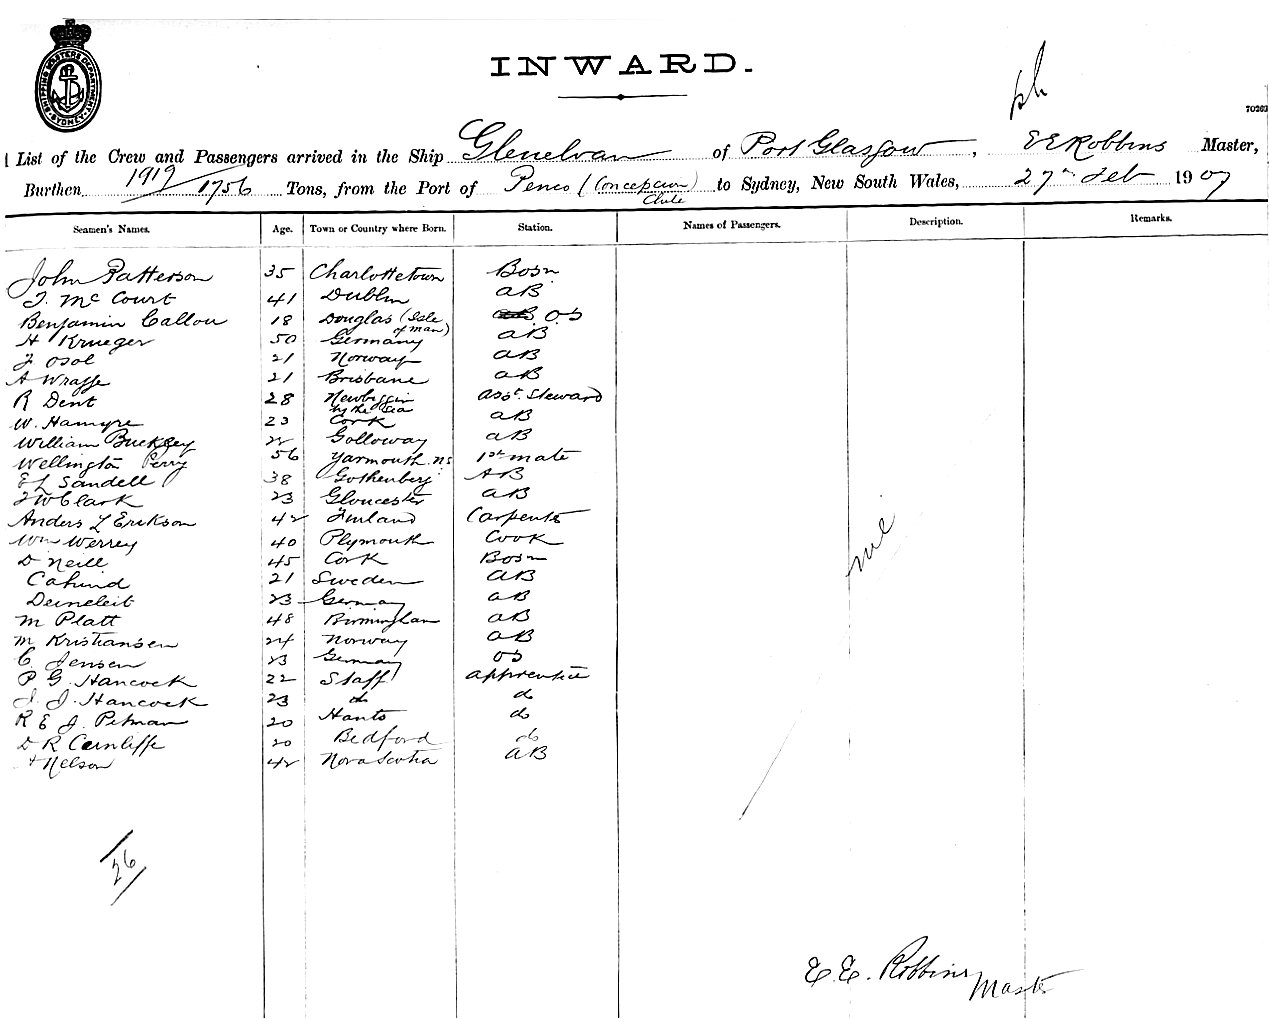 SHIPPING MASTERS DEPARTMENT SYDNEY
INWARD.
70263
List of the Crew and Passengers arrived in the Ship Glenelvan of Port Glasgow, E E Robbins Master,
Burthen 1919/1756 Tons, from the Port of Penco (Concepcion) to Sydney, New South Wales, 27th Feb 1907
Chile
Seamen's Names. Age. Town or Country where Born. Station. Names of Passengers. Description. Remarks.
John Patterson 35 Charlottetown Bosn
T. McCourt 41 Dublin AB
Benjamin Callow 18 Douglas (Isle of Man) OS
H Krueger 50 Germany AB
J Osol 21 Norway AB
A Wragge 21 Brisbane AB
R Dent 28 Newbiggin by the Sea Asst. Steward
W. Hamyre 23 Cork AB
William Buckley 22 Golloway AB
Wellington Perry 56 Yarmouth. NS 1st mate
E L Sandell 38 Gothenberg AB
J W Clark 23 Gloucester AB
Anders L Erikson 42 Finland Carpenter
Wm Werrey 40 Plymouth Cook
D Neill 45 Cork Bosn
Cahind 21 Sweden AB
Deineleit 23 Germany AB
M Platt 48 Birmingham AB
M Kristiansen 24 Norway AB
C. Jensen 23 Germany OS
P G. Hancock 22 Staff apprentice
J. J. Hancock 23 do do
R E J. Pitman 20 Hants do
D R Cunliffe 20 Bedford do
Nelson 42 Nova Scotia AB
nil
26
E. E. Robbins
Master